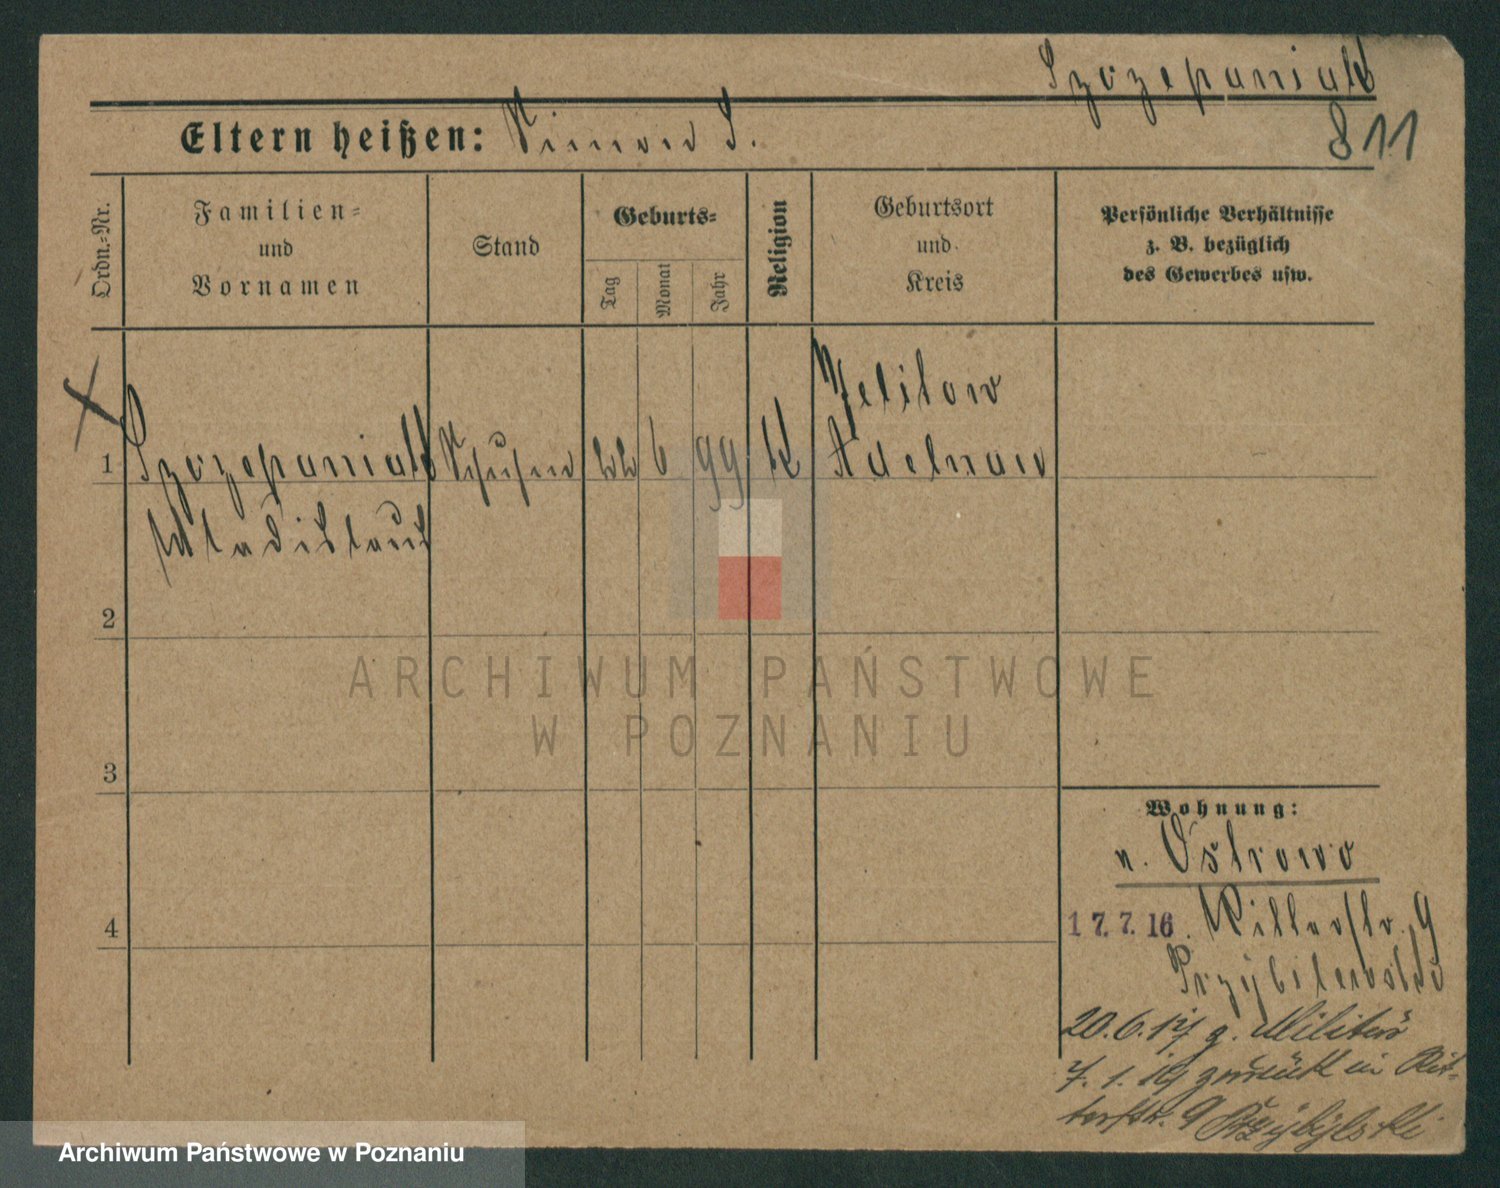 Szczepaniak
811
Eltern heißen: Simon S.
Ordn.=Nr.
Familien=
und
Vornamen
Stand
Geburts=
Tag
Monat
Jahr
Religion
Geburtsort
und
Kreis
Persönliche Verhältnisse
z. B. bezüglich
des Gewerbes usw.
1
Szczepaniak
22 6 99 K
Adelnau
Wladislaus
2
3
4
Wohnung:
n. Ostrowo
17.7.16. Ritterstr. 9
20.6.17 z. Militär
7.1.19 zurück in Rit-
terstr. 9 Przybylski
ARCHIWUM PAŃSTWOWE
W POZNANIU
Archiwum Państwowe w Poznaniu